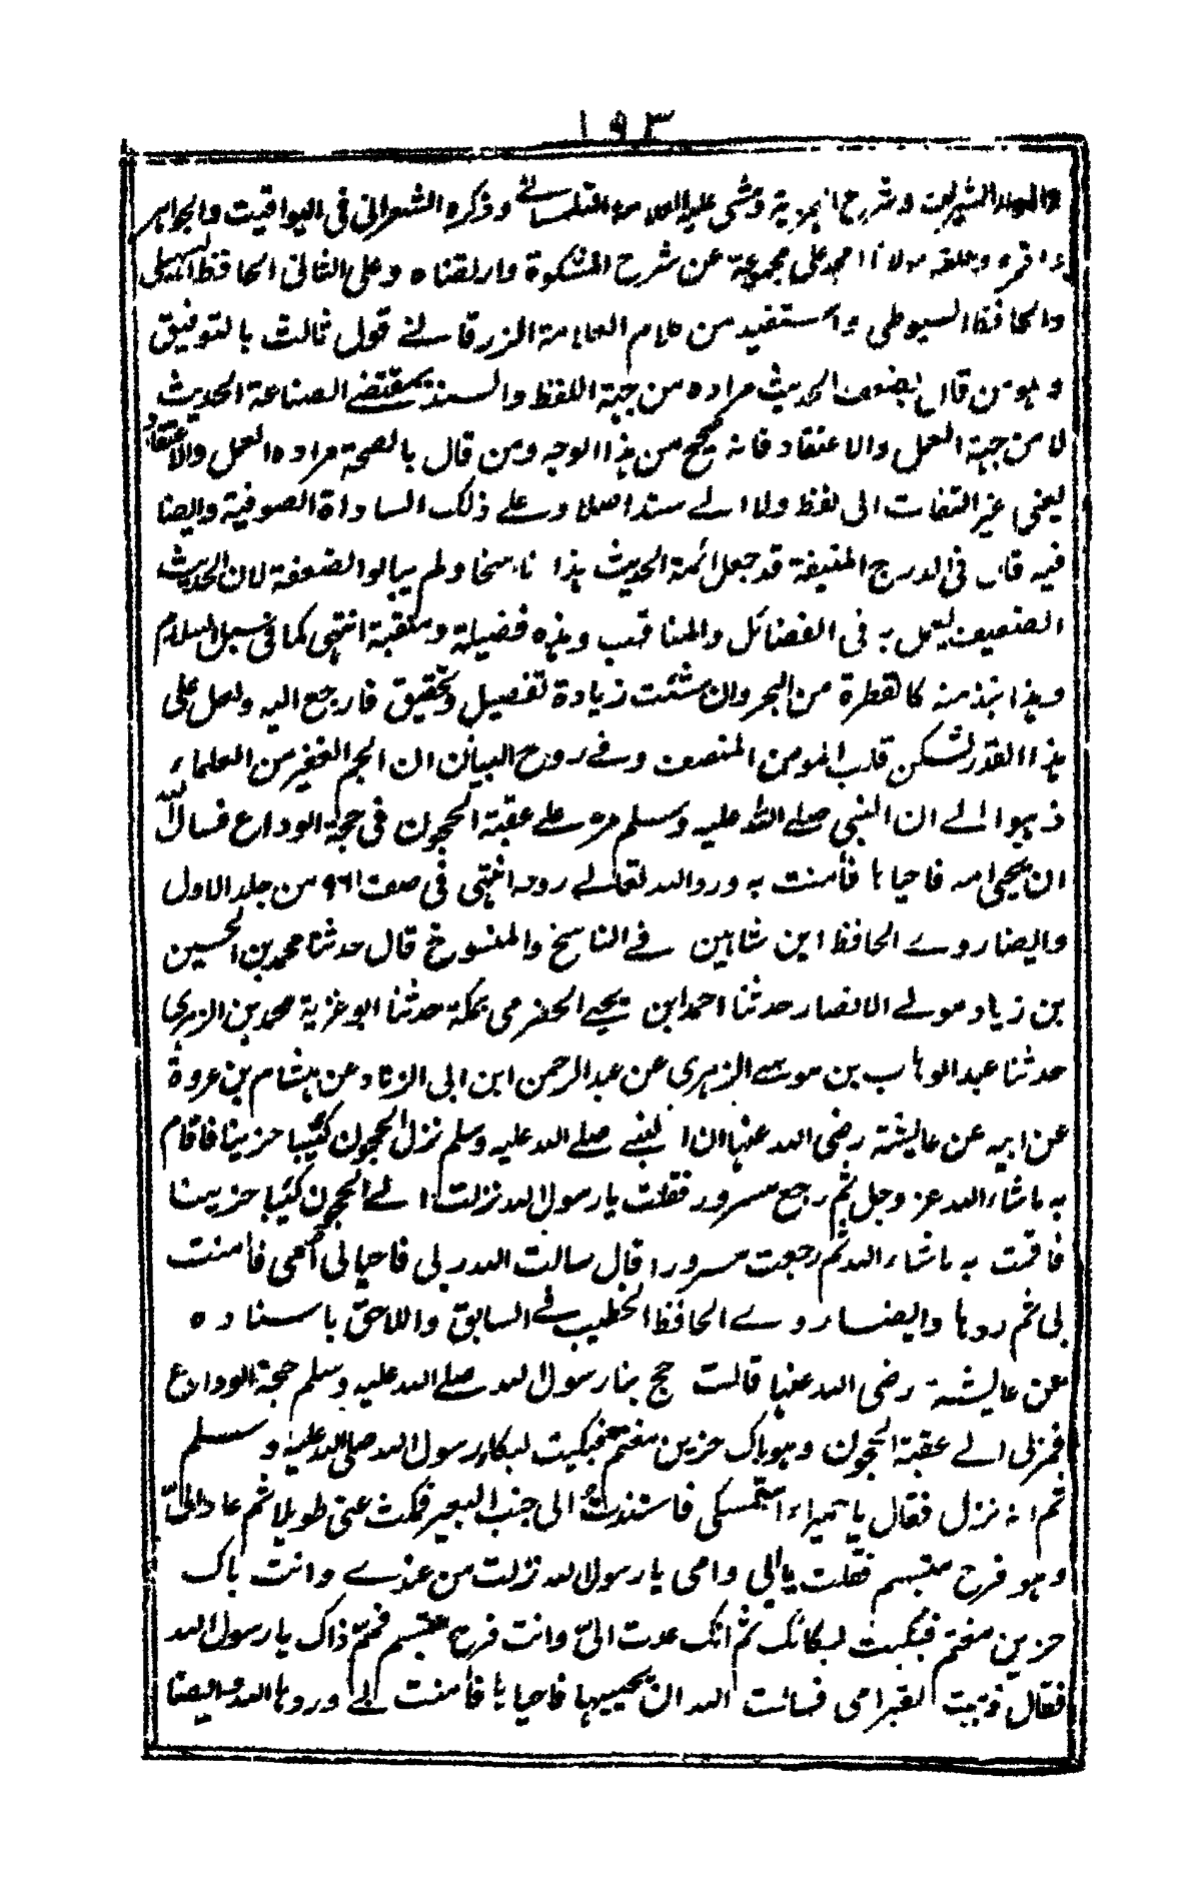 ١٩٣
والمولد الشريف وشرح الهمزية ومشى عليه التلمسانے وذكره الشعرانى فى اليواقيت والجواهر
واقره مولانا احمد على مجموعة عن شرح المشكوة وارتقناه وعلى الثانى الحافظ السهيلى
والحافظ السيوطى واستفيد من كلام العلامة الزرقانے قول ثالث بالتوفيق
وهو من قال بضعف الحديث مراده من جهة اللفظ والسند بمقتضے الصناعة الحديث
لا من جهة العمل والاعتقاد فانه صحيح من هذا الوجه ومن قال بالصحة مراده العمل والاعتقاد
يعنى غير التفات الى لفظ ولا الے سند اصلا وعلے ذلك الساداة الصوفية وايضا
فيه قال فى الدرج المنيفة قد جعل ائمة الحديث هذا ناسخا ولم يبالوا لضعفه لان الحديث
الضعيف يعمل به فى الفضائل والمناقب وهذه فضيلة ومنقبة انتهى كما فى سبل السلام
وهذا نبذ منه كالقطرة من البحر وان شئت زيادة تفصيل وتحقيق فارجع اليه ولعل على
هذا القدر لتسكن قلب المومن المنصف وفے روح البيان ان الجم الغفير من العلماء
ذهبوا الے ان النبى صلے الله عليه وسلم مر علے عقبة الحجون فى حجة الوداع فسال الله
ان يحيى امه فاحياها فأمنت به وردها الله تعالے روحه انتهى فى صفت ٩٦١ من جلد الاول
وايضا روے الحافظ ابن شاهين فے الناسخ والمنسوخ قال حدثنا محمد بن الحسين
بن زياد مولے الانصار حدثنا احمد ابن يحيے الحضرمى بمكة حدثنا ابو غزية محمد بن الزهرى
حدثنا عبد الوهاب بن موسے الزهرى عن عبد الرحمن ابن ابى الزناد عن هشام بن عروة
عن ابيه عن عايشة رضى الله عنها ان النبے صلے الله عليه وسلم نزل الحجون كئيبا حزينا فاقام
به ماشاء الله عز وجل ثم رجع مسرور فقلت يا رسول الله نزلت الے الحجون كئيبا حزينا
فاقمت به ماشاء الله ثم رجعت مسرورا قال سالت الله ربى فاحيا لى أمى فأمنت
بى ثم ردها وايضا روے الحافظ الخطيب فے السابق واللاحق باسناده
عن عايشة رضى الله عنها قالت حج بنا رسول الله صلے الله عليه وسلم حجة الوداع
فمر بى الے عقبة الحجون وهو باك حزين مغتم فبكيت لبكاء رسول الله صلى الله عليه وسلم
ثم انه نزل فقال يا حميراء استمسكى فاستندت الى جنب البعير فمكث عنى طويلا ثم عاد الىّ
وهو فرح متبسم فقلت بابى وامى يا رسول الله نزلت من عندے وانت باك
حزين مغتم فبكيت لبكائك ثم انك عدت الىّ وانت فرح متبسم فممّ ذاك يا رسول الله
فقال ذهبت لقبر امى فسالت الله ان يحييها فاحياها فأمنت بے وردها الله وايضا